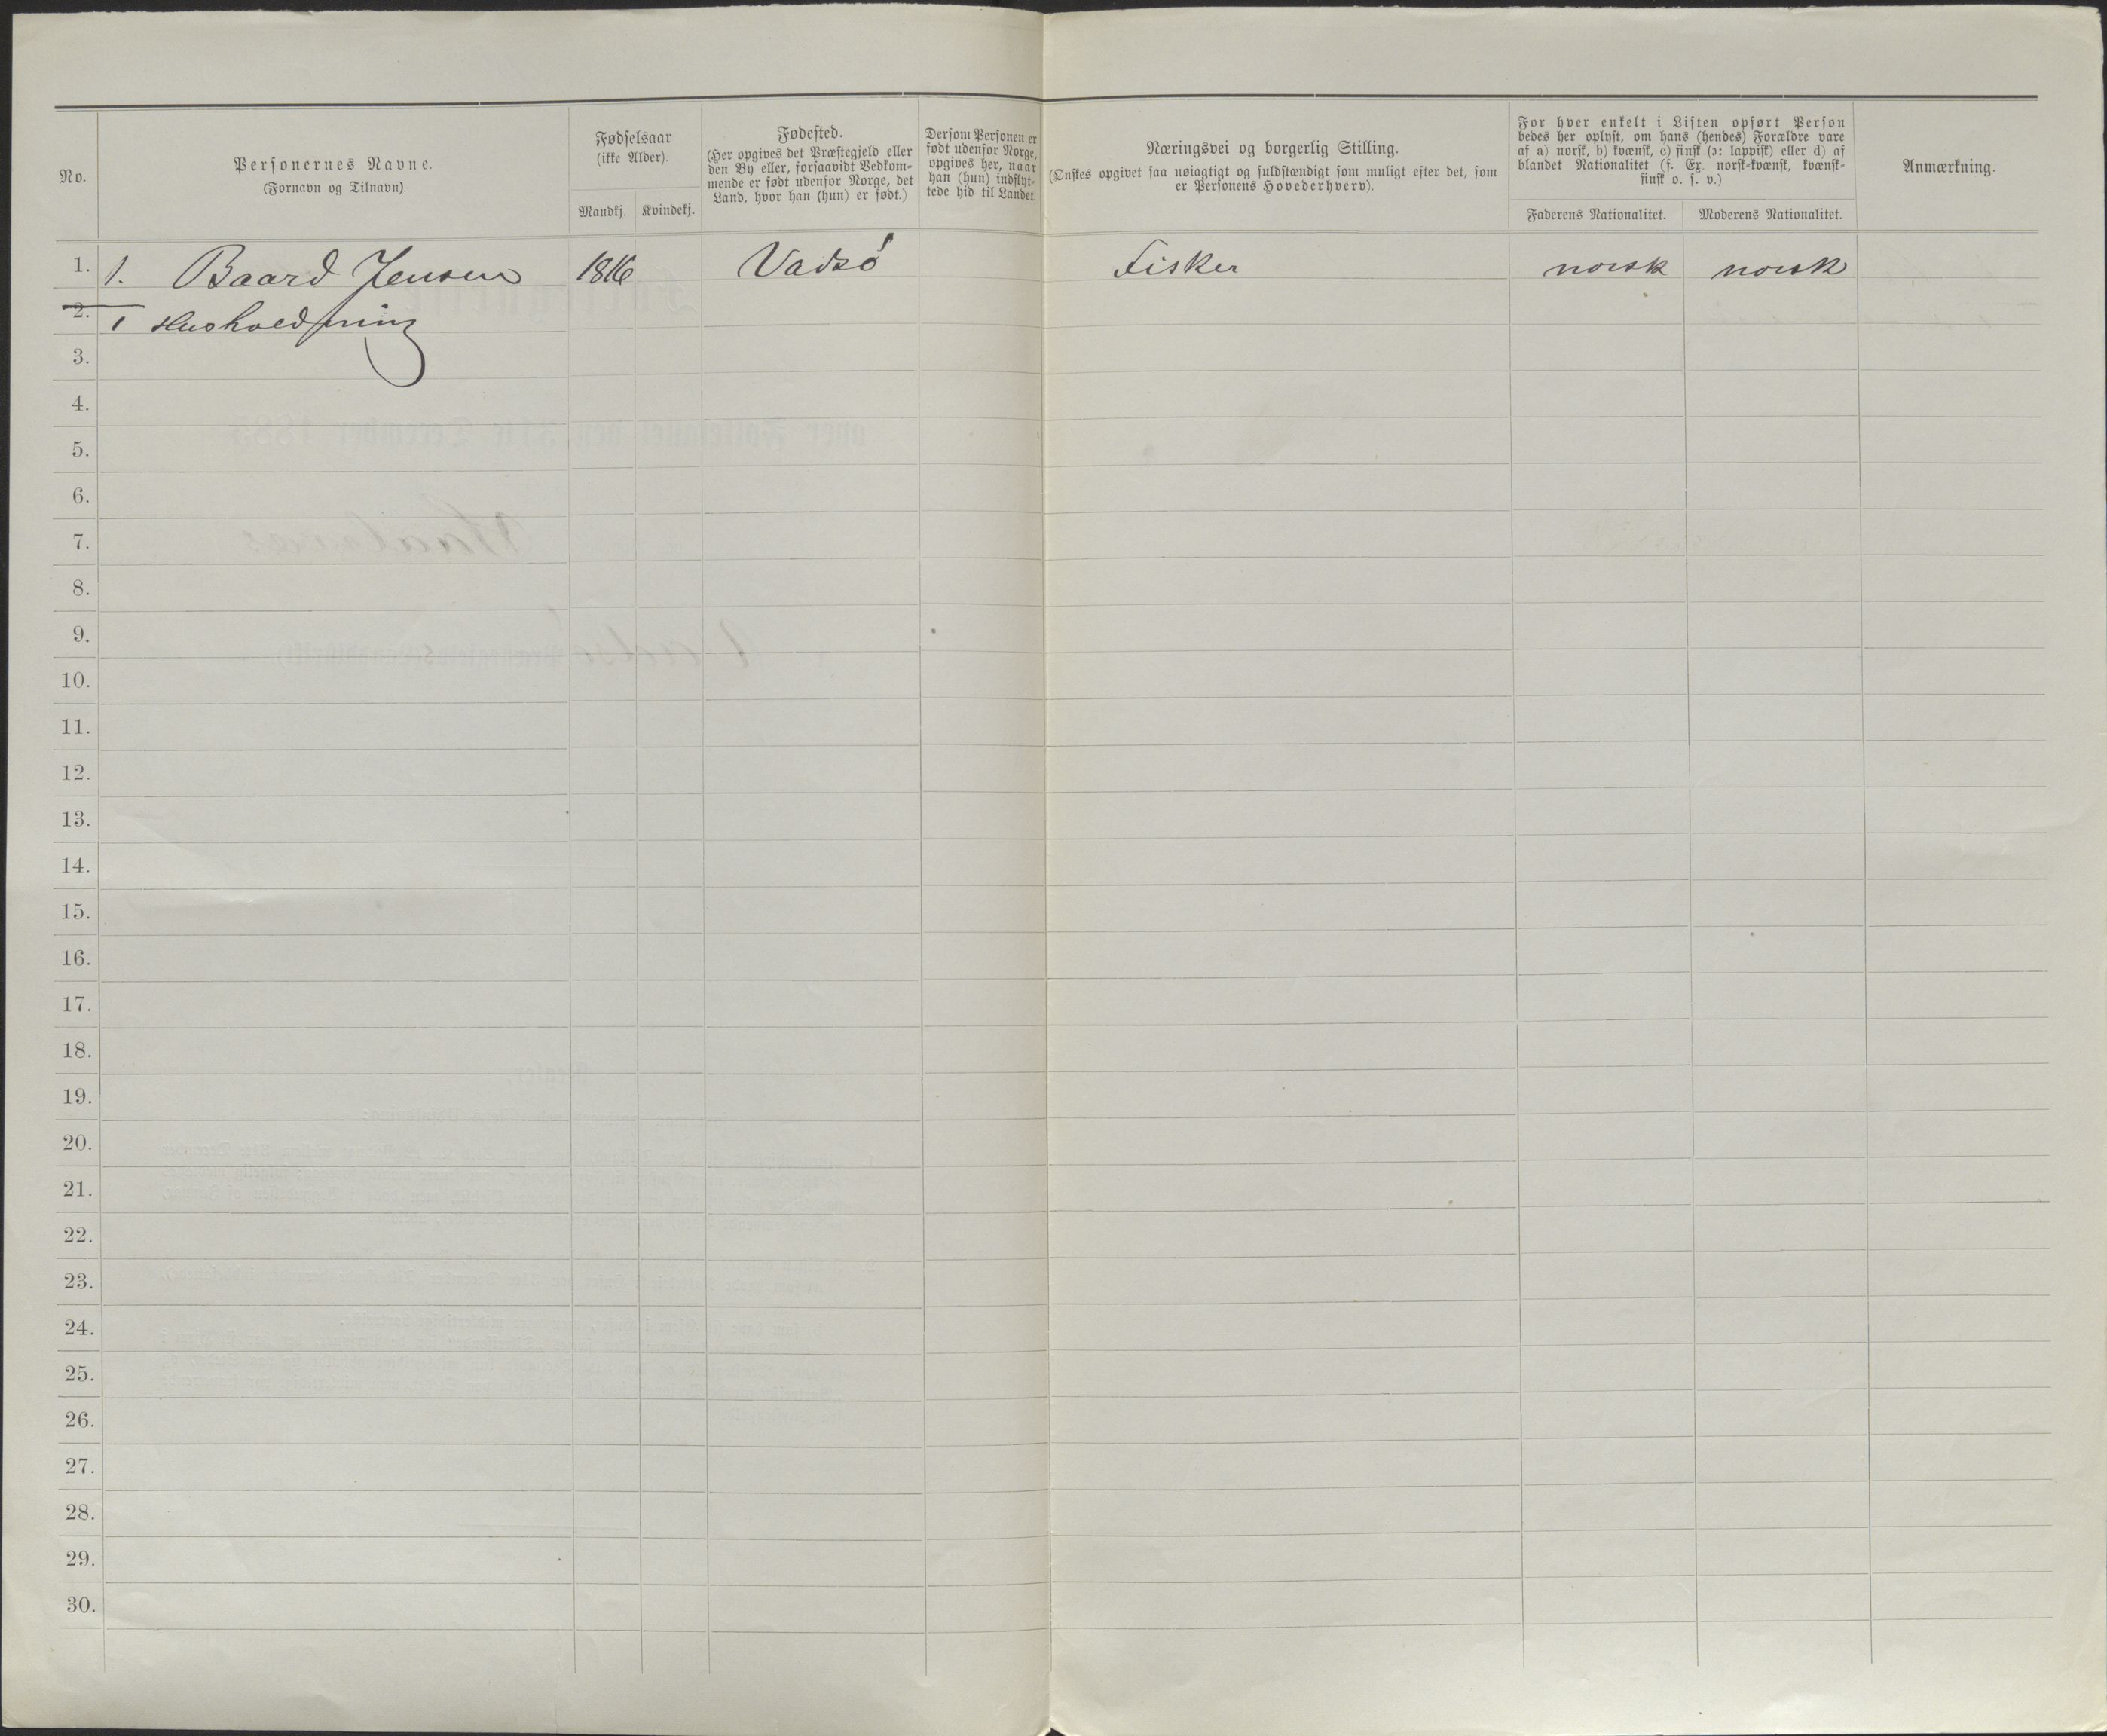 No.
Personernes Navne.
(Fornavn og Tilnavn).
Fødselsaar
(ikke Alder).
Mandkj.
Kvindekj.
Fødested.
(Her opgives det Præstegjeld eller
den By eller, forsaavidt Vedkom-
mende er født udenfor Norge, det
Land, hvor han (hun) er født.)
Dersom Personen er
født udenfor Norge,
opgives her, naar
han (hun) indflyt-
tede hid til Landet.
Næringsvei og borgerlig Stilling.
(Ønskes opgivet saa nøiagtigt og fuldstændigt som muligt efter det, som
er Personens Hovederhverv).
For hver enkelt i Listen opført Person
bedes her oplyst, om hans (hendes) Forældre vare
af a) norsk, b) kvænsk, c) finsk (ɔ: lappisk) eller d) af
blandet Nationalitet (f. Ex. norsk-kvænsk, kvænsk-
finsk o. s. v.)
Faderens Nationalitet.
Moderens Nationalitet.
Anmærkning.
1. 1. Baard Jensen 1816 Vadsö Fisker norsk norsk
2. 1 Husholdning
3.
4.
5.
6.
7.
8.
9.
10.
11.
12.
13.
14.
15.
16.
17.
18.
19.
20.
21.
22.
23.
24.
25.
26.
27.
28.
29.
30.